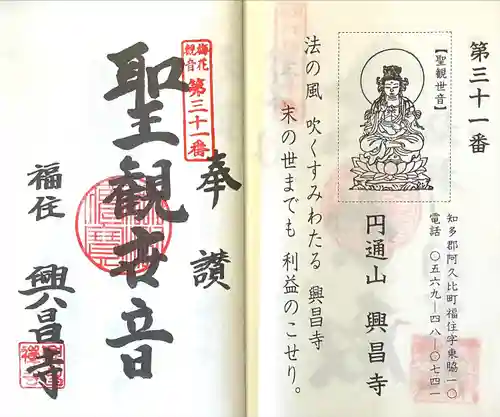 第三十一番
【聖観世音】
円通山 興昌寺
知多郡阿久比町福住字東脇一〇
電話 〇五六九―四八―〇七四一
法の風 吹くすみわたる 興昌寺
末の世までも 利益のこせり。
梅花
観音
第三十一番
奉讃
聖観世音
福住
興昌寺